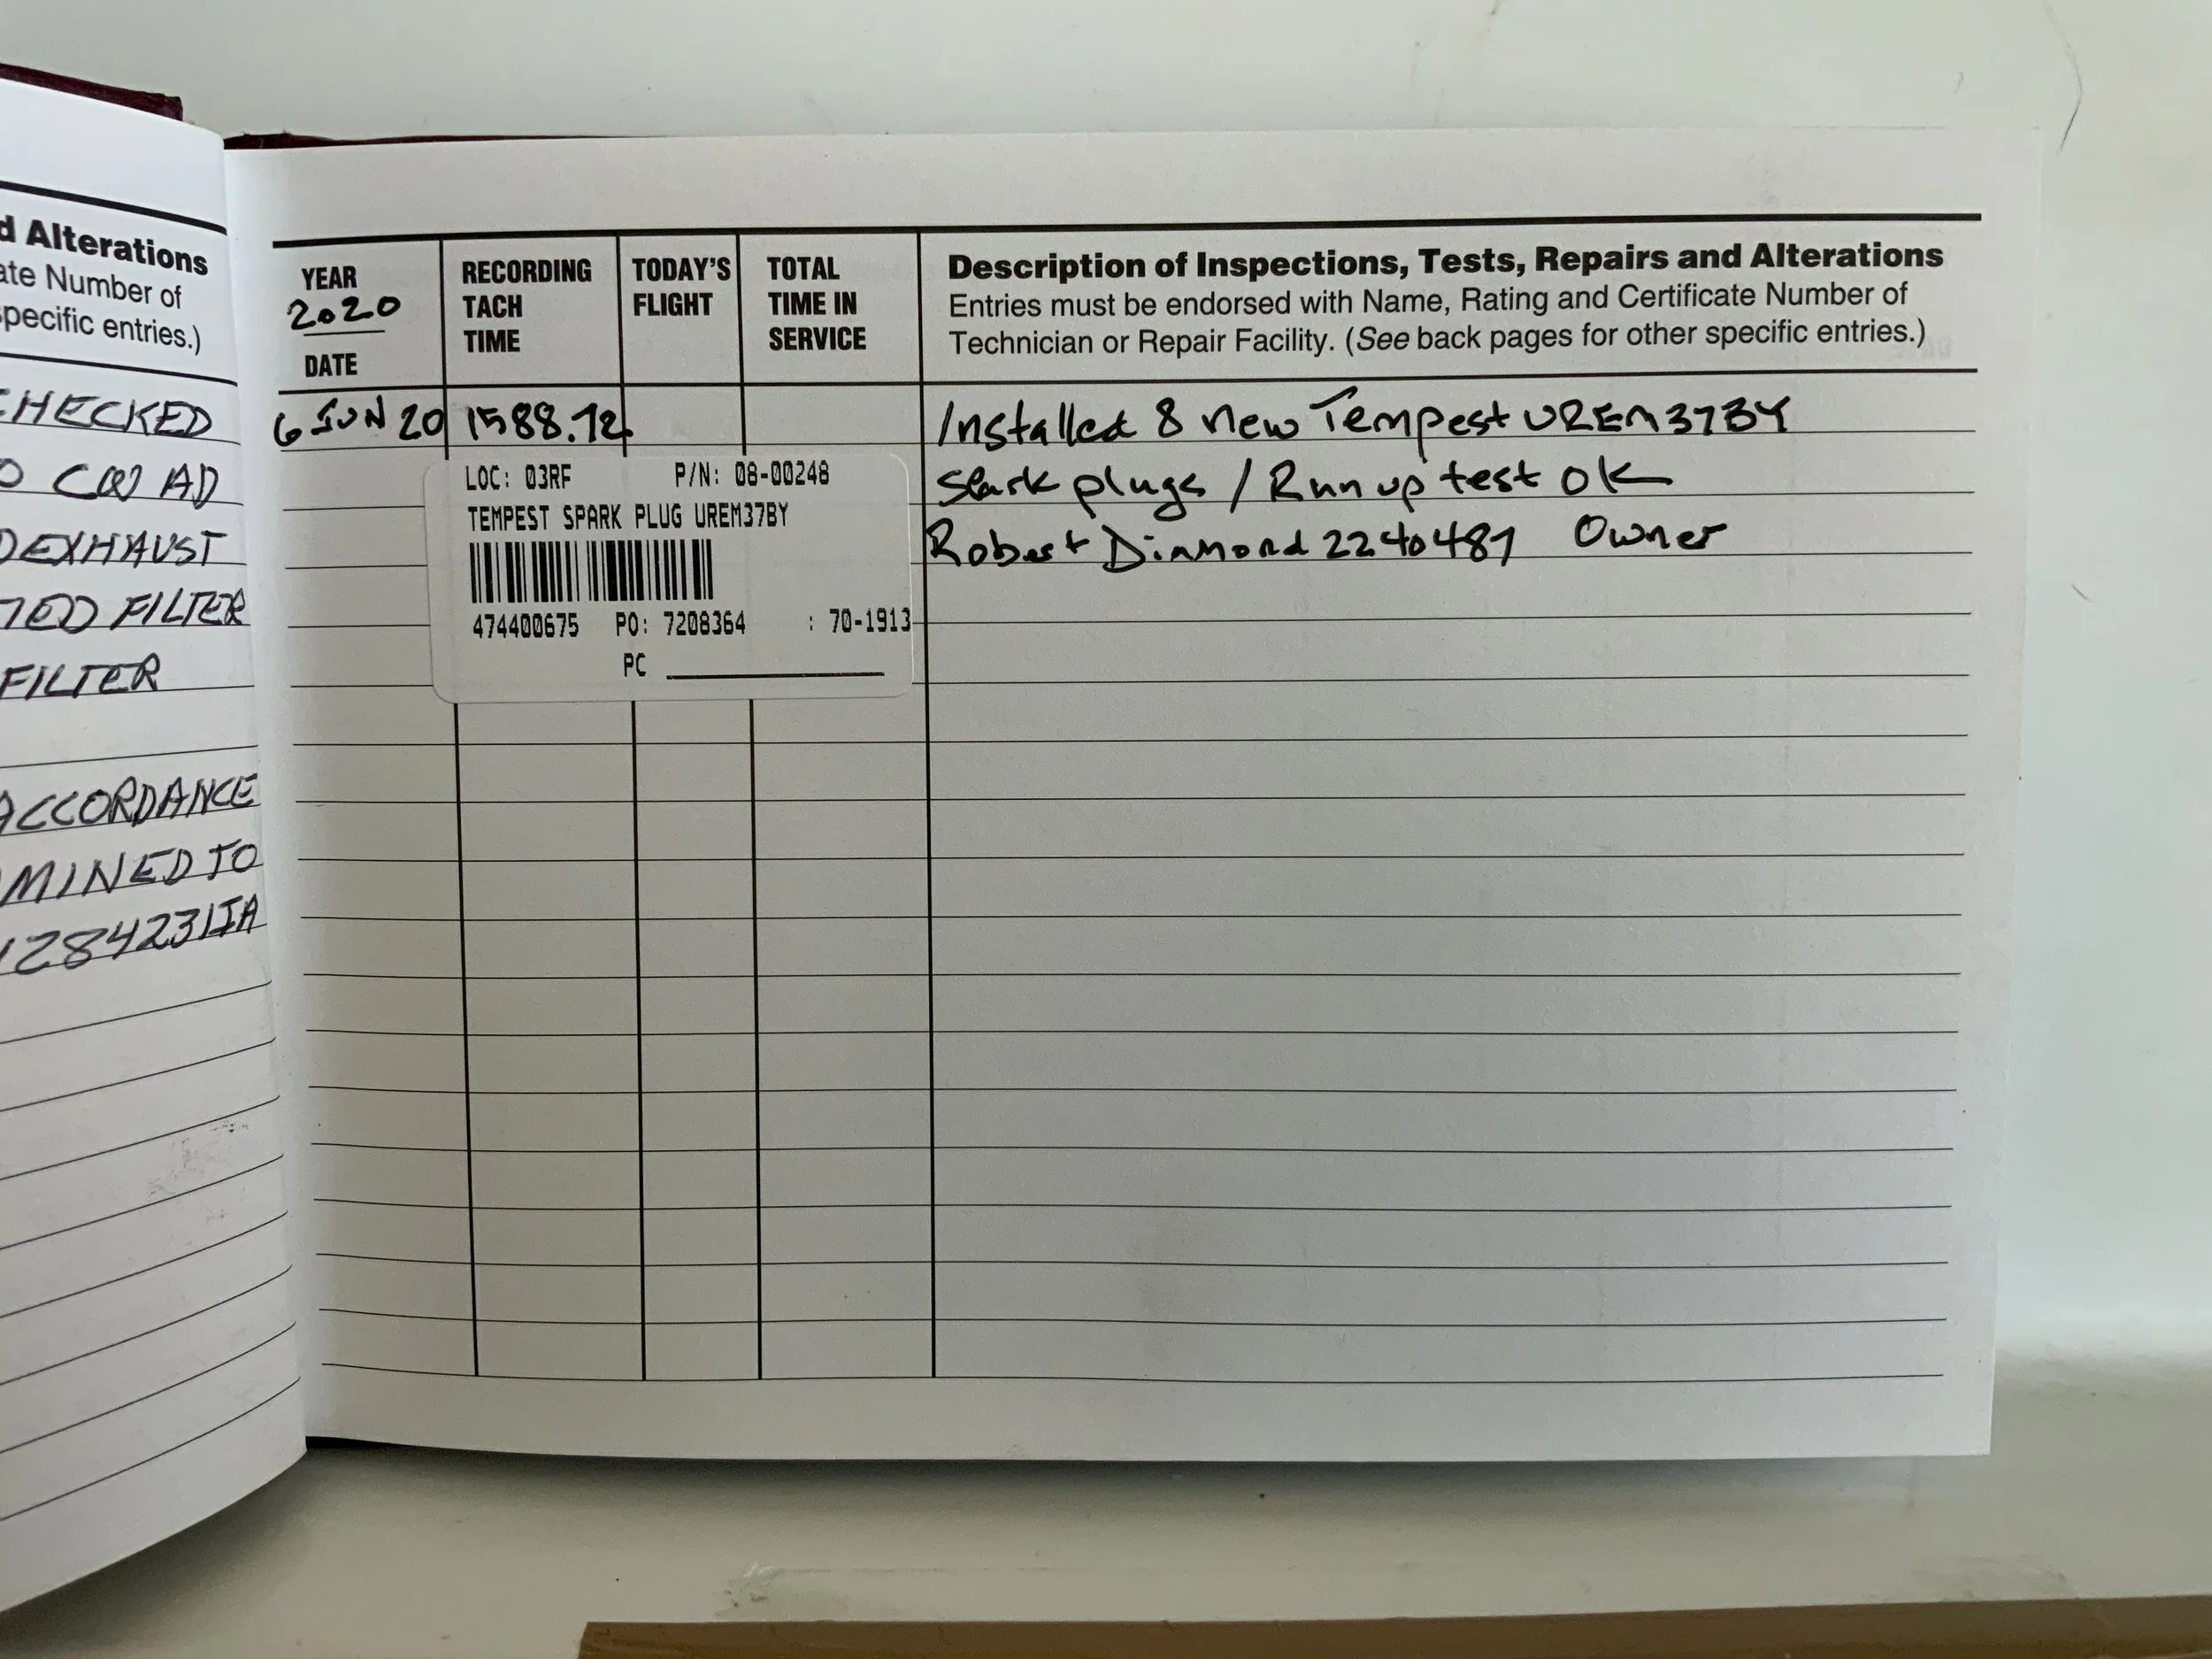 d Alterations
ate Number of
pecific entries.)
CHECKED
O CW AD
D EXHAUST
TED FILTER
FILTER
ACCORDANCE
MINED TO
1284231IA
YEAR
2020
DATE
RECORDING
TACH
TIME
TODAY'S
FLIGHT
TOTAL
TIME IN
SERVICE
Description of Inspections, Tests, Repairs and Alterations
Entries must be endorsed with Name, Rating and Certificate Number of
Technician or Repair Facility. (See back pages for other specific entries.)
6 JUN 20 1588.12 Installed 8 new Tempest UREM37BY
spark plugs / Run up test OK
Robert Diamond 2240487 Owner
LOC: 03RF P/N: 08-00248
TEMPEST SPARK PLUG UREM37BY
474400675 PO: 7208364 : 70-1913
PC